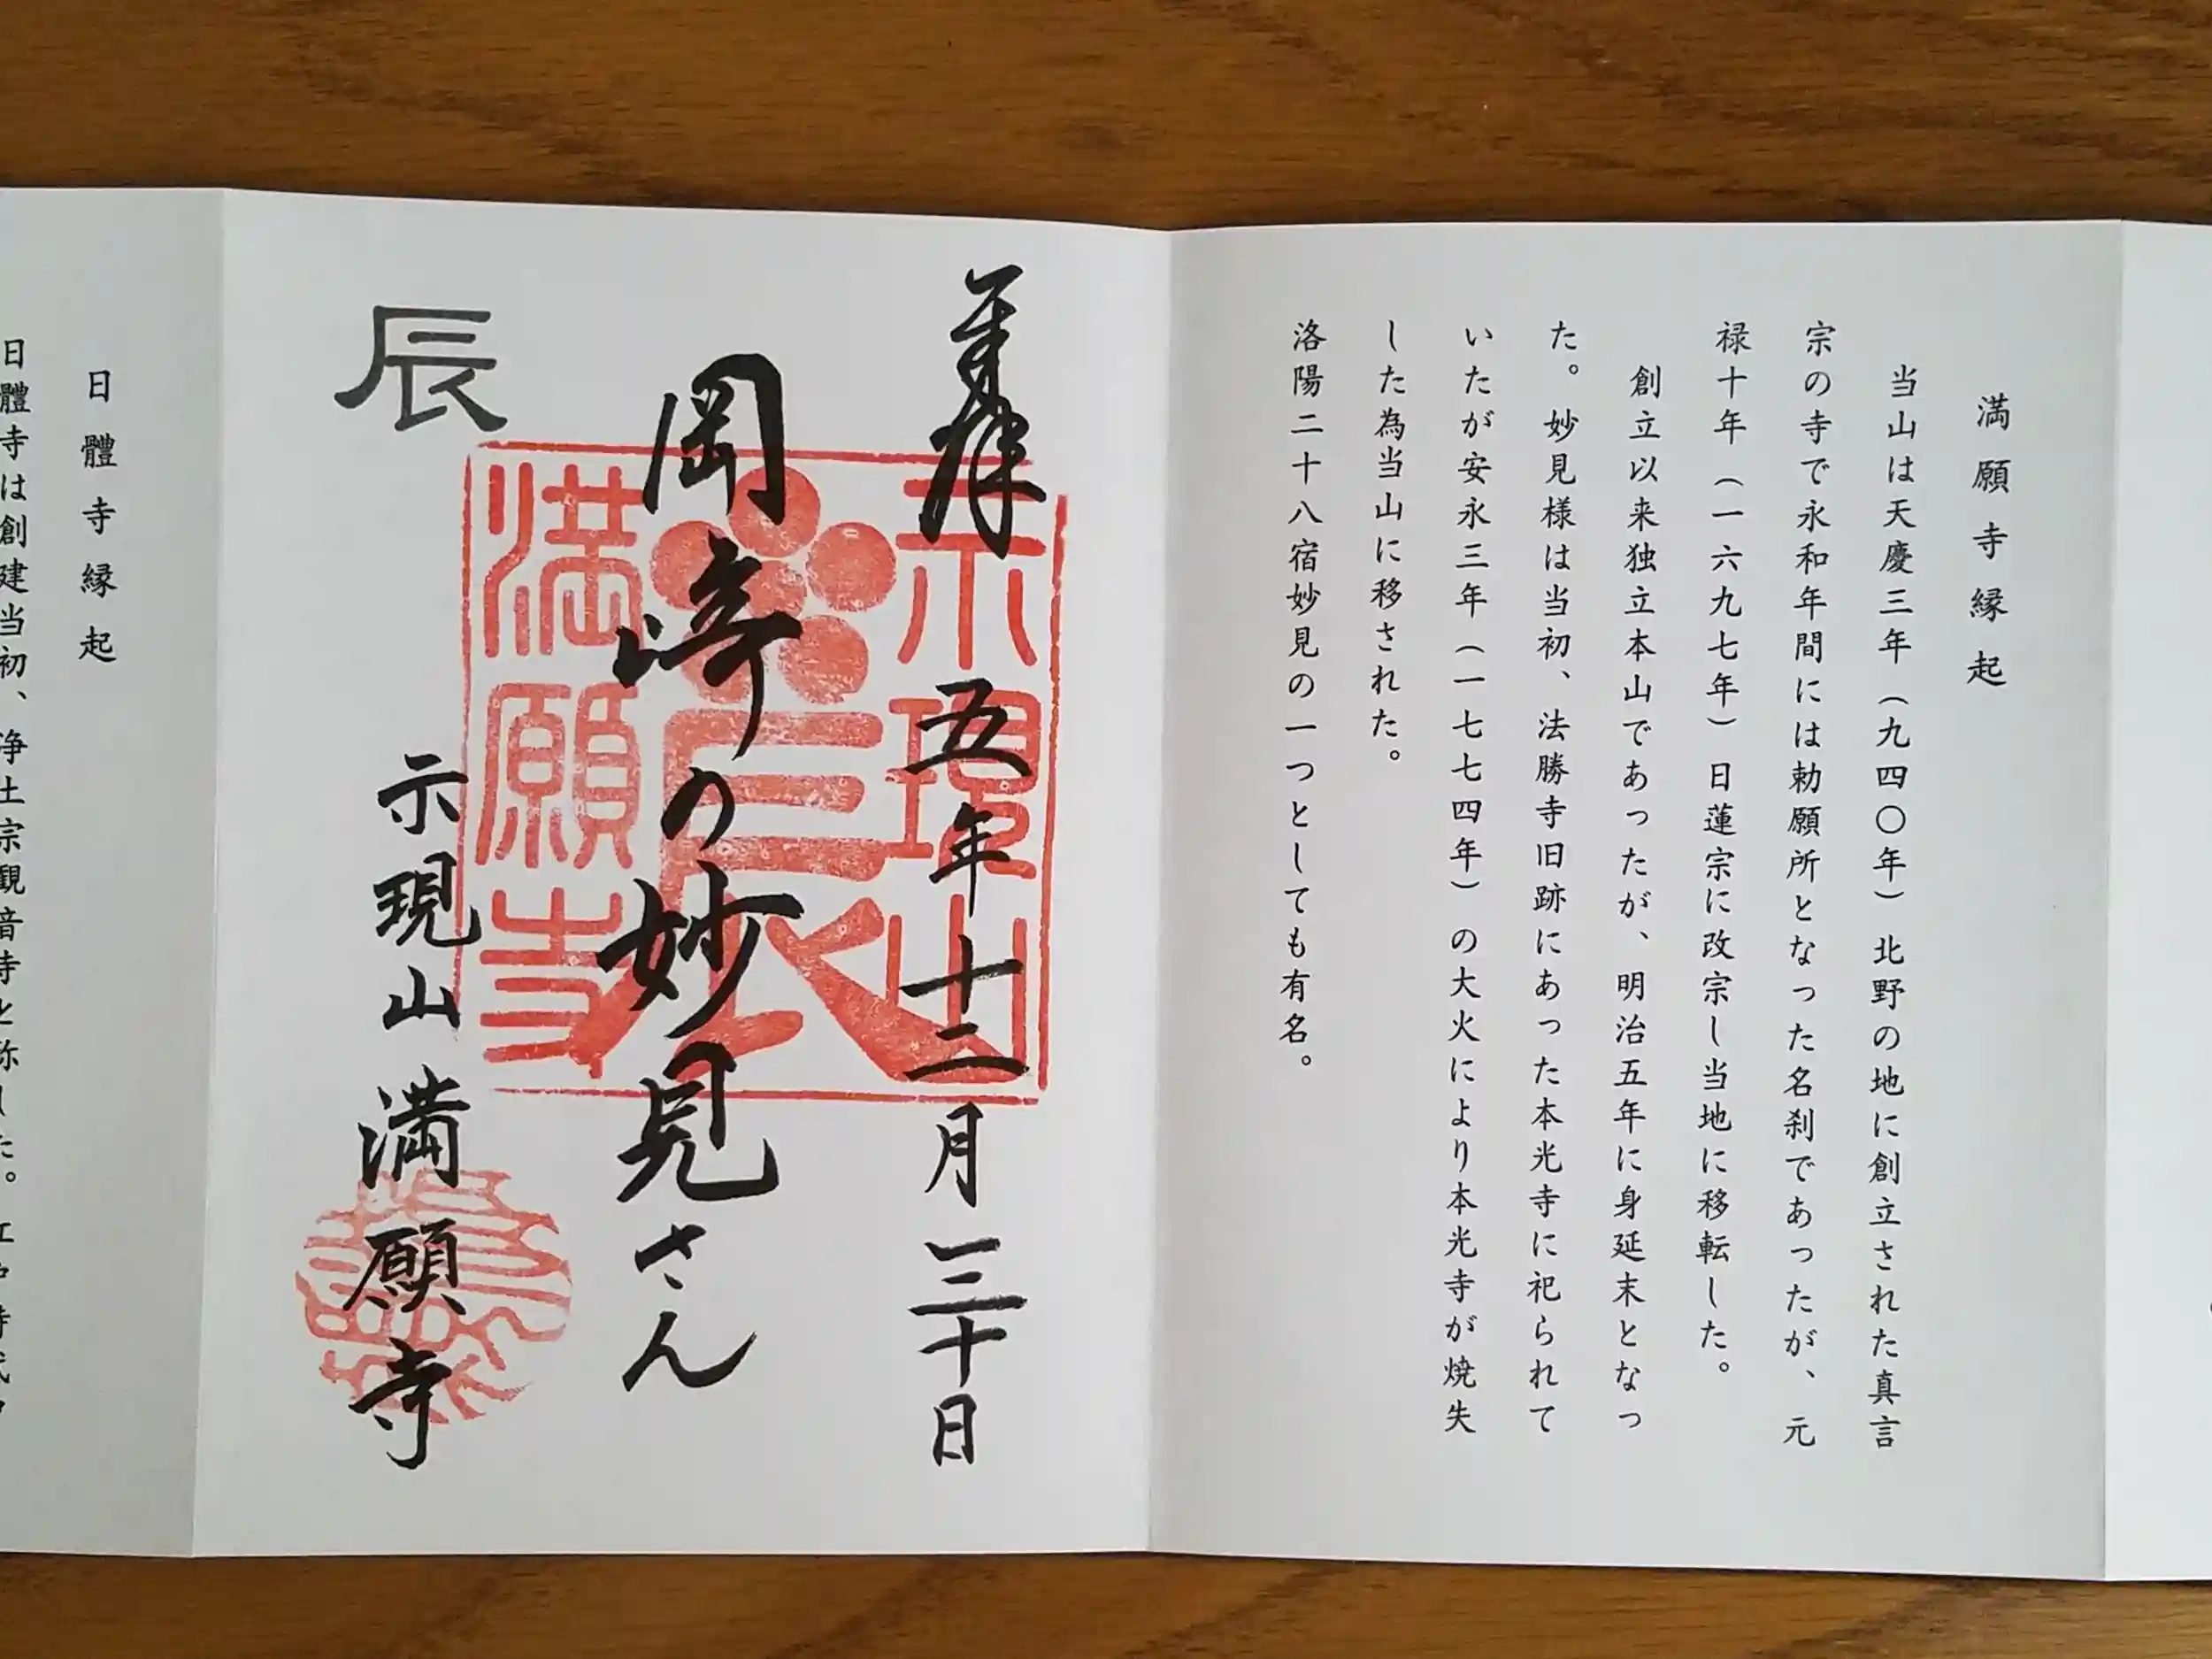 満願寺縁起
当山は天慶三年（九四〇年）北野の地に創立された真言
宗の寺で永和年間には勅願所となった名刹であったが、元
禄十年（一六九七年）日蓮宗に改宗し当地に移転した。
創立以来独立本山であったが、明治五年に身延末となっ
た。妙見様は当初、法勝寺旧跡にあった本光寺に祀られて
いたが安永三年（一七七四年）の大火により本光寺が焼失
した為当山に移された。
洛陽二十八宿妙見の一つとしても有名。
奉拝
五年十二月三十日
岡崎の妙見さん
辰
示現山満願寺
示現山
満願寺
日體寺縁起
日體寺は創建当初、浄土宗観音寺と称した。江戸時代中